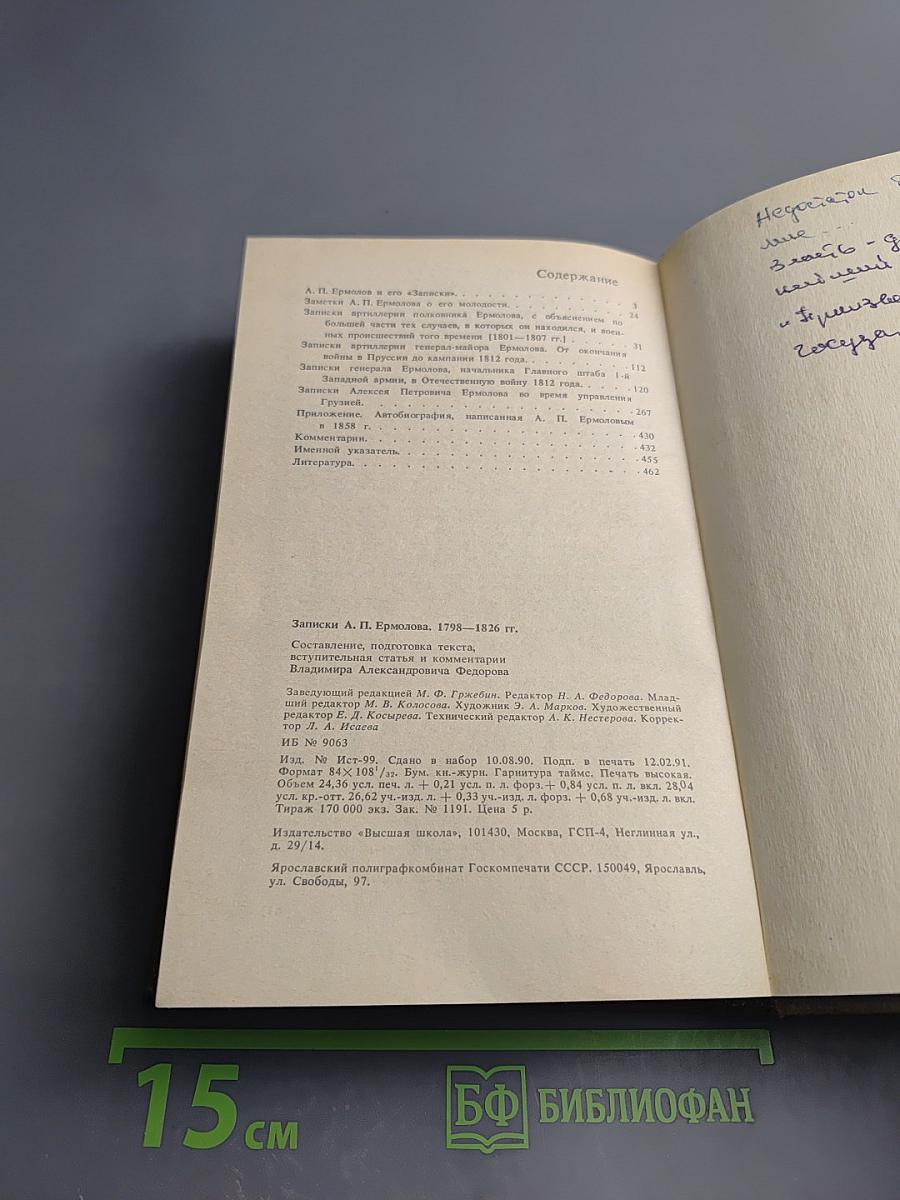 Содержание
А. П. Ермолов и его «Записки». . . . . . . . . . . . 3
Заметки А. П. Ермолова о его молодости. . . . . . . . 24
Записки артиллерии полковника Ермолова, с объяснением по
большей части тех случаев, в которых он находился, и воен-
ных происшествий того времени [1801—1807 гг.] . . . . 31
Записки артиллерии генерал-майора Ермолова. От окончания
войны в Пруссии до кампании 1812 года. . . . . . . . 112
Записки генерала Ермолова, начальника Главного штаба 1-й
Западной армии, в Отечественную войну 1812 года. . . . 120
Записки Алексея Петровича Ермолова во время управления
Грузией. . . . . . . . . . . . . . . . 267
Приложение. Автобиография, написанная А. П. Ермоловым
в 1858 г. . . . . . . . . . . . . . . . 430
Комментарии. . . . . . . . . . . . . . . . 432
Именной указатель. . . . . . . . . . . . . . 455
Литература. . . . . . . . . . . . . . . . 462
Записки А. П. Ермолова. 1798—1826 гг.
Составление, подготовка текста,
вступительная статья и комментарии
Владимира Александровича Федорова
Заведующий редакцией М. Ф. Гржебин. Редактор Н. А. Федорова. Млад-
ший редактор М. В. Колосова. Художник Э. А. Марков. Художественный
редактор Е. Д. Косырева. Технический редактор А. К. Нестерова. Коррек-
тор Л. А. Исаева
ИБ № 9063
Изд. № Ист-99. Сдано в набор 10.08.90. Подп. в печать 12.02.91.
Формат 84×108¹/₃₂. Бум. кн.-журн. Гарнитура таймс. Печать высокая.
Объем 24,36 усл. печ. л. + 0,21 усл. п. л. форз.+ 0,84 усл. п. л. вкл. 28,04
усл. кр.-отт. 26,62 уч.-изд. л. + 0,33 уч.-изд. л. форз. + 0,68 уч.-изд. л. вкл.
Тираж 170 000 экз. Зак. № 1191. Цена 5 р.
Издательство «Высшая школа», 101430, Москва, ГСП-4, Неглинная ул.,
д. 29/14.
Ярославский полиграфкомбинат Госкомпечати СССР. 150049, Ярославль,
ул. Свободы, 97.
Недостаток
Власть -
15 см
БФ БИБЛИОФАН